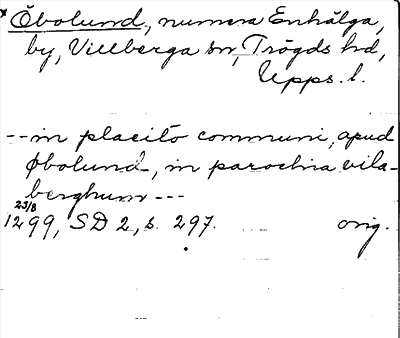 * Öbolund, numera Enhälga,
by, Villberga sn, Trögds hd,
Upps. l.
-- in placito communi, apud
Øbolund, in parochia vila-
berghum ---
23/8
1299, SD 2, s. 297. orig.